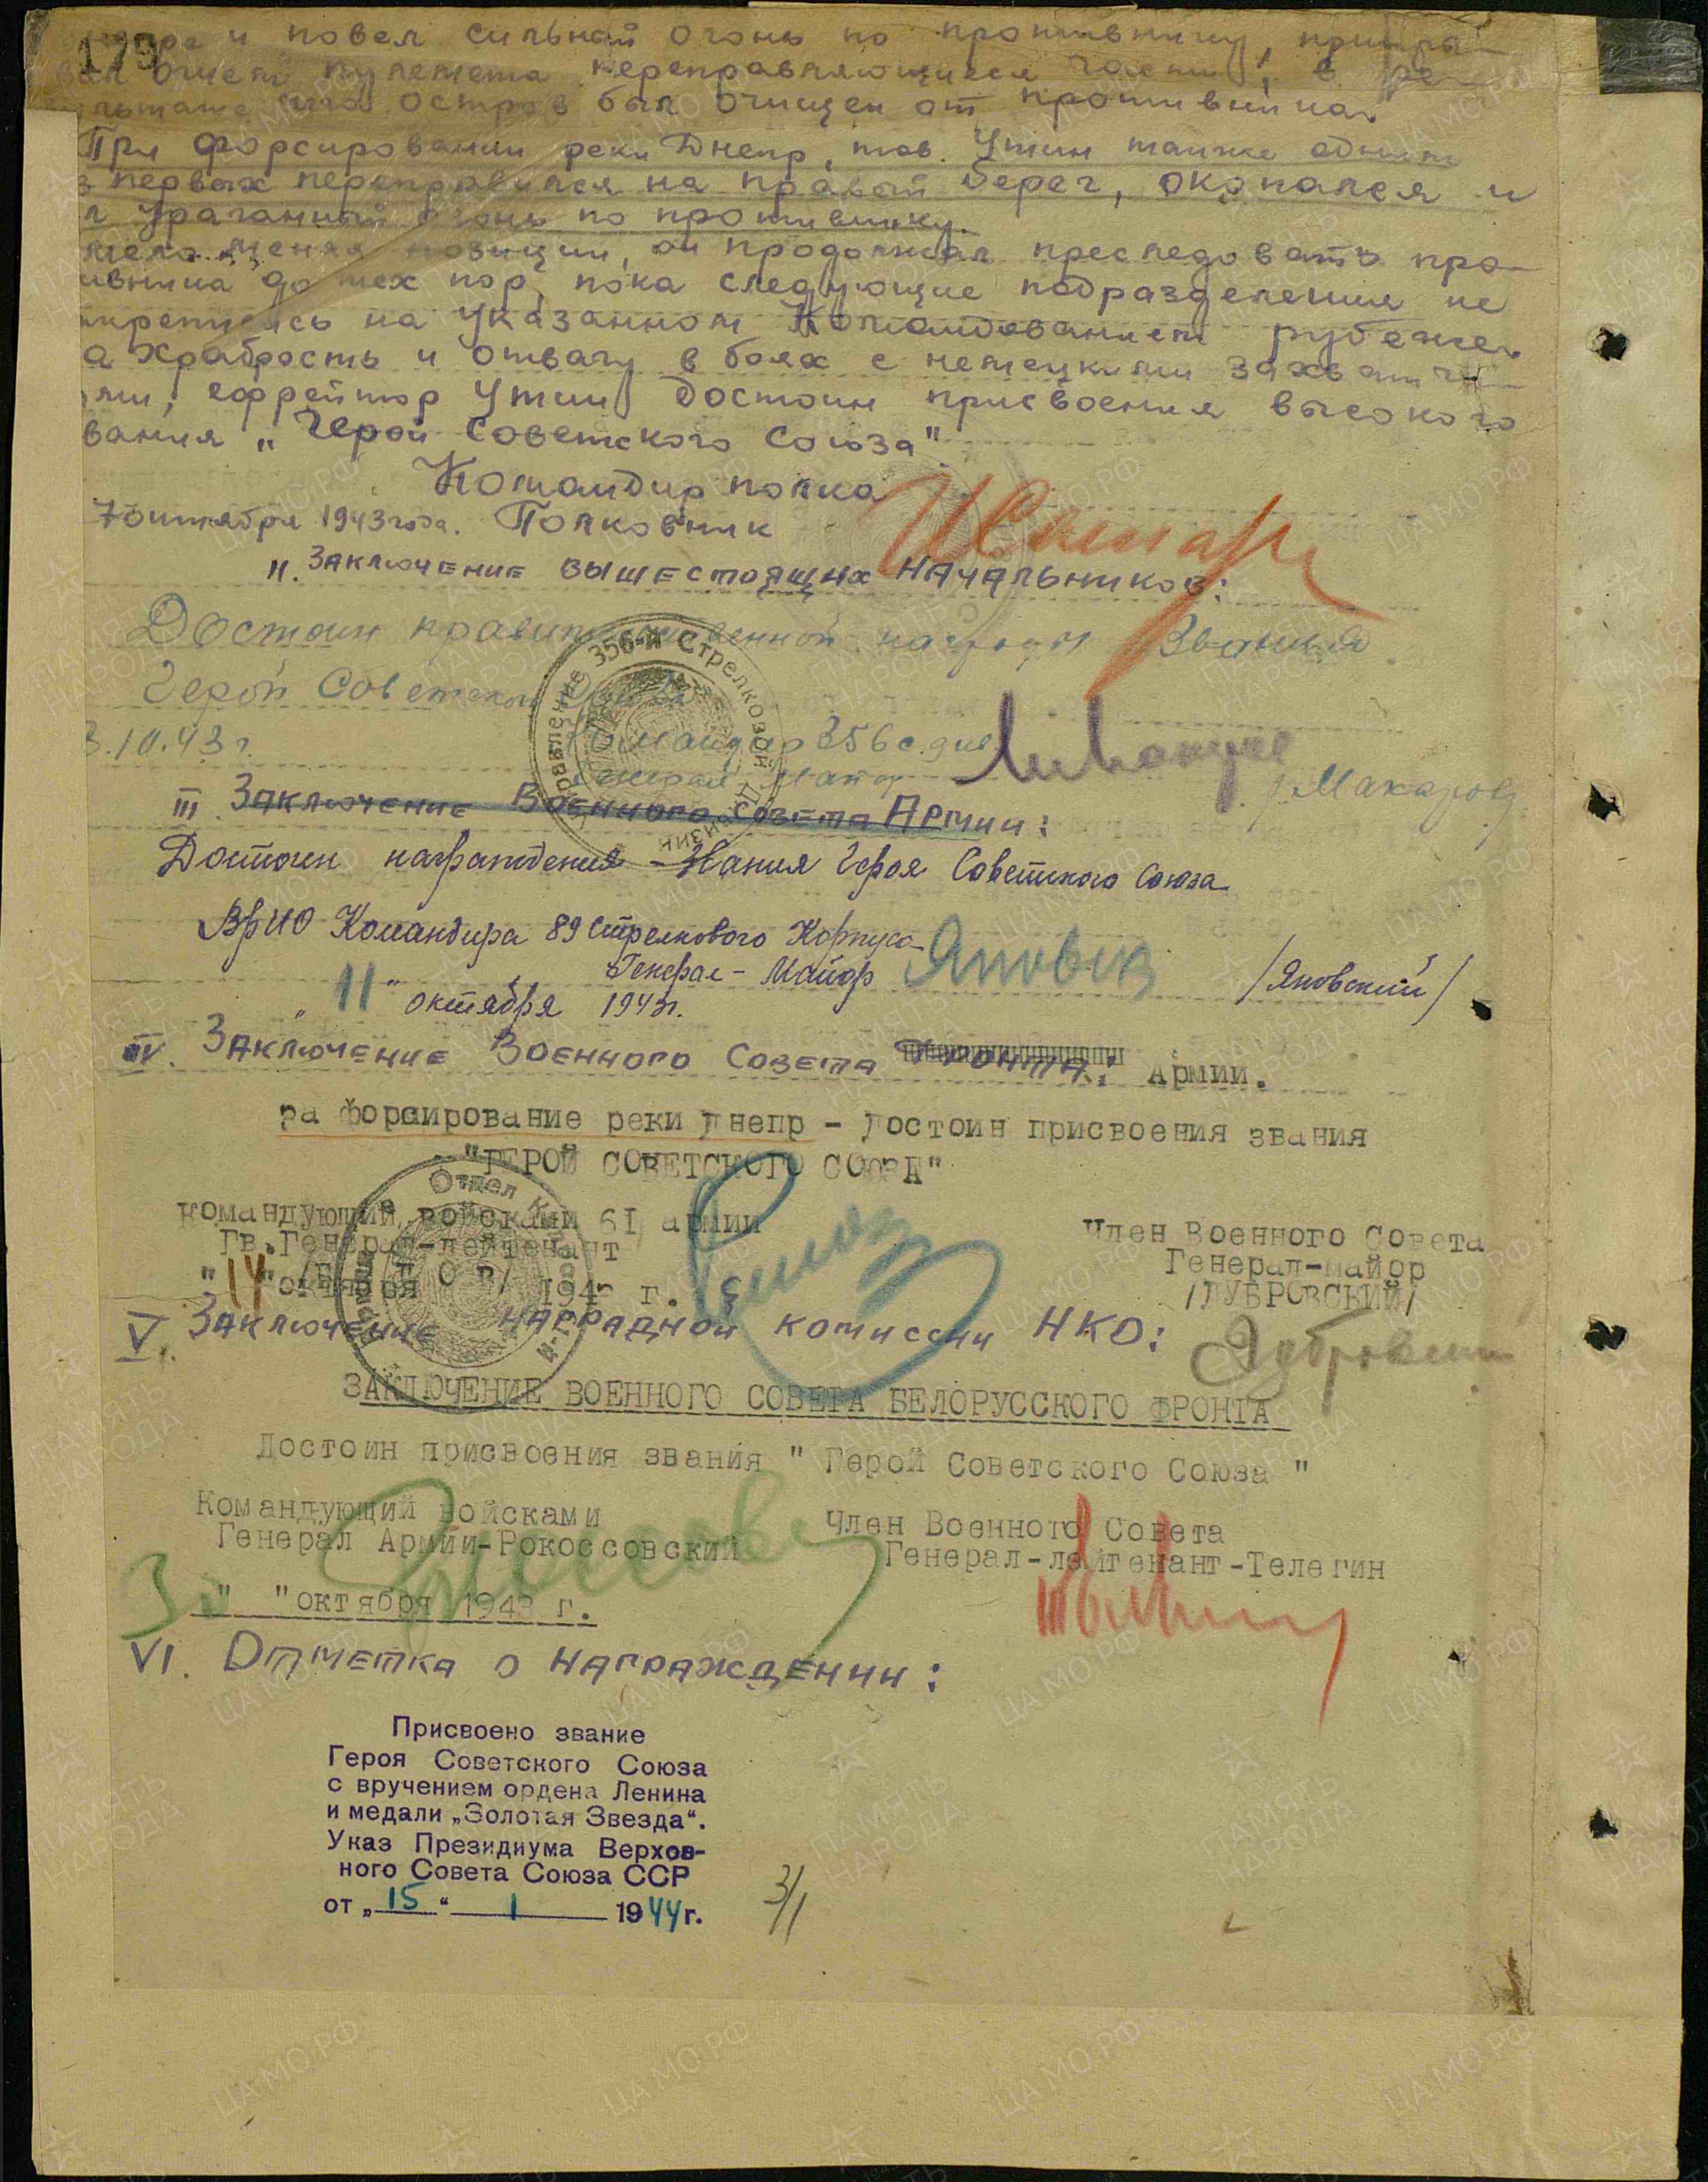 179
и повел сильный огонь по противнику, прикры-
вая огнем пулемета переправляющиеся части, в ре-
зультате чего остров был очищен от противника.
При форсировании реки Днепр, тов. Утин также одним
из первых переправился на правый берег, окопался и
ураганный огонь по противнику.
меняя позиции, он продолжал преследовать про-
ивника до тех пор, пока следующие подразделения не
акрепились на указанном Командованием рубеже.
а храбрость и отвагу в боях с немецкими захватчи-
ами, ефрейтор Утин достоин присвоения высокого
вания „Герой Советского Союза".
Командир полка
7 октября 1943 года. Полковник
II. Заключение вышестоящих начальников:
Достоин правительственной награды Звания
Герой Советского Союза
3.10.43 г.
Командир 356 с.див
Генерал Майор
/Макаров/
Управление 356-й Стрелковой Дивизии
III. Заключение Военного Совета Армии:
Достоин награждения Звания Героя Советского Союза
ВРИО Командира 89 Стрелкового Корпуса
Генерал-Майор /Яновский/
„11" октября 1943г.
IV. Заключение Военного Совета Фронта: Армии.
за форсирование реки Днепр - достоин присвоения звания
"ГЕРОЙ СОВЕТСКОГО СОЮЗА"
Командующий войсками 61 армии
Гв. Генерал-лейтенант
"14" октября 1943 г.
Член Военного Совета
Генерал-майор
/ДУБРОВСКИЙ/
V. Заключение наградной комиссии НКО:
ЗАКЛЮЧЕНИЕ ВОЕННОГО СОВЕТА БЕЛОРУССКОГО ФРОНТА
Достоин присвоения звания " Герой Советского Союза "
Командующий войсками
Генерал Армии-Рокоссовский
Член Военного Совета
Генерал-лейтенант-Телегин
"30" октября 1943 г.
VI. Отметка о награждении:
Присвоено звание
Героя Советского Союза
с вручением ордена Ленина
и медали „Золотая Звезда“.
Указ Президиума Верхов-
ного Совета Союза ССР
от „15“ 1 1944 г.
3/1